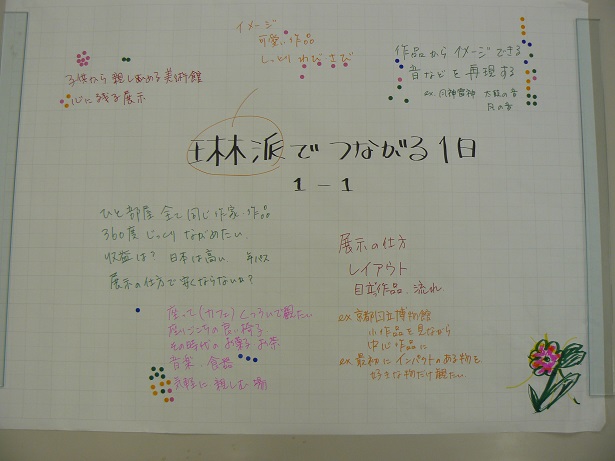 イメージ
可愛い作品
しっとり わび さび
子供から 親しめる美術館
心に残る展示
作品から イメージできる
音などを 再現する
ex. 風神雷神 太鼓の音
風の音
琳派で つながる 1日
1-1
ひと部屋 全て同じ作家・作品
360度 じっくり ながめたい
収益は? 日本は高い 年パス
展示の仕方で 安くならないか?
展示の仕方
レイアウト
目立つ作品 流れ
座って(カフェ)くつろいで観たい
座りごこちの良い椅子
その時代の お菓子 お茶
音楽・食器
気軽に 親しむ 場
ex 京都国立博物館
小作品を見ながら
中心作品に
ex 最初に インパクトのある物を
好きな物だけ観たい